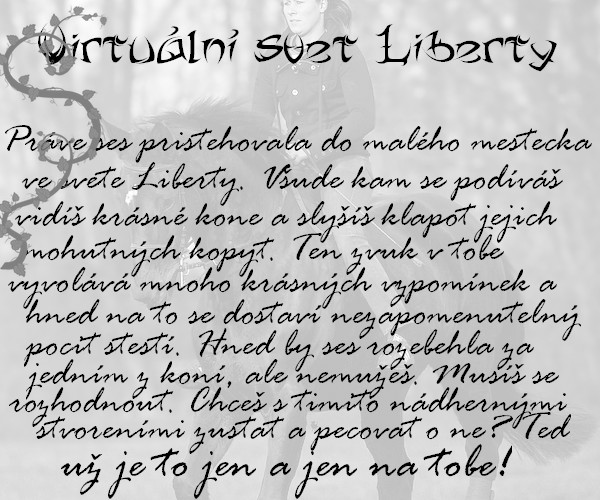 Virtuální svet Liberty
Práve ses pristehovala do malého mestecka
ve svete Liberty. Všude kam se podíváš
vidíš krásné kone a slyšíš klapot jejich
mohutných kopyt. Ten zvuk v tobe
vyvolává mnoho krásných vzpomínek a
hned na to se dostaví nezapomenutelný
pocit stestí. Hned by ses rozebehla za
jedním z koní, ale nemužeš. Musíš se
rozhodnout. Chceš s timito nádhernými
stvoreními zustat a pecovat o ne? Ted
už je to jen a jen na tobe!